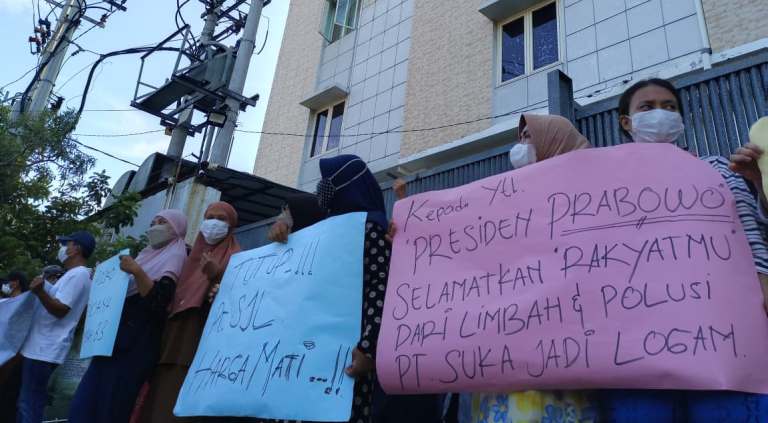 TUTUP...!!!
PT SJL
HARGA MATI....!!
Kepada Yth.
"PRESIDEN PRABOWO"
SELAMATKAN "RAKYATMU"
DARI LIMBAH & POLUSI
PT. SUKA JADI LOGAM.